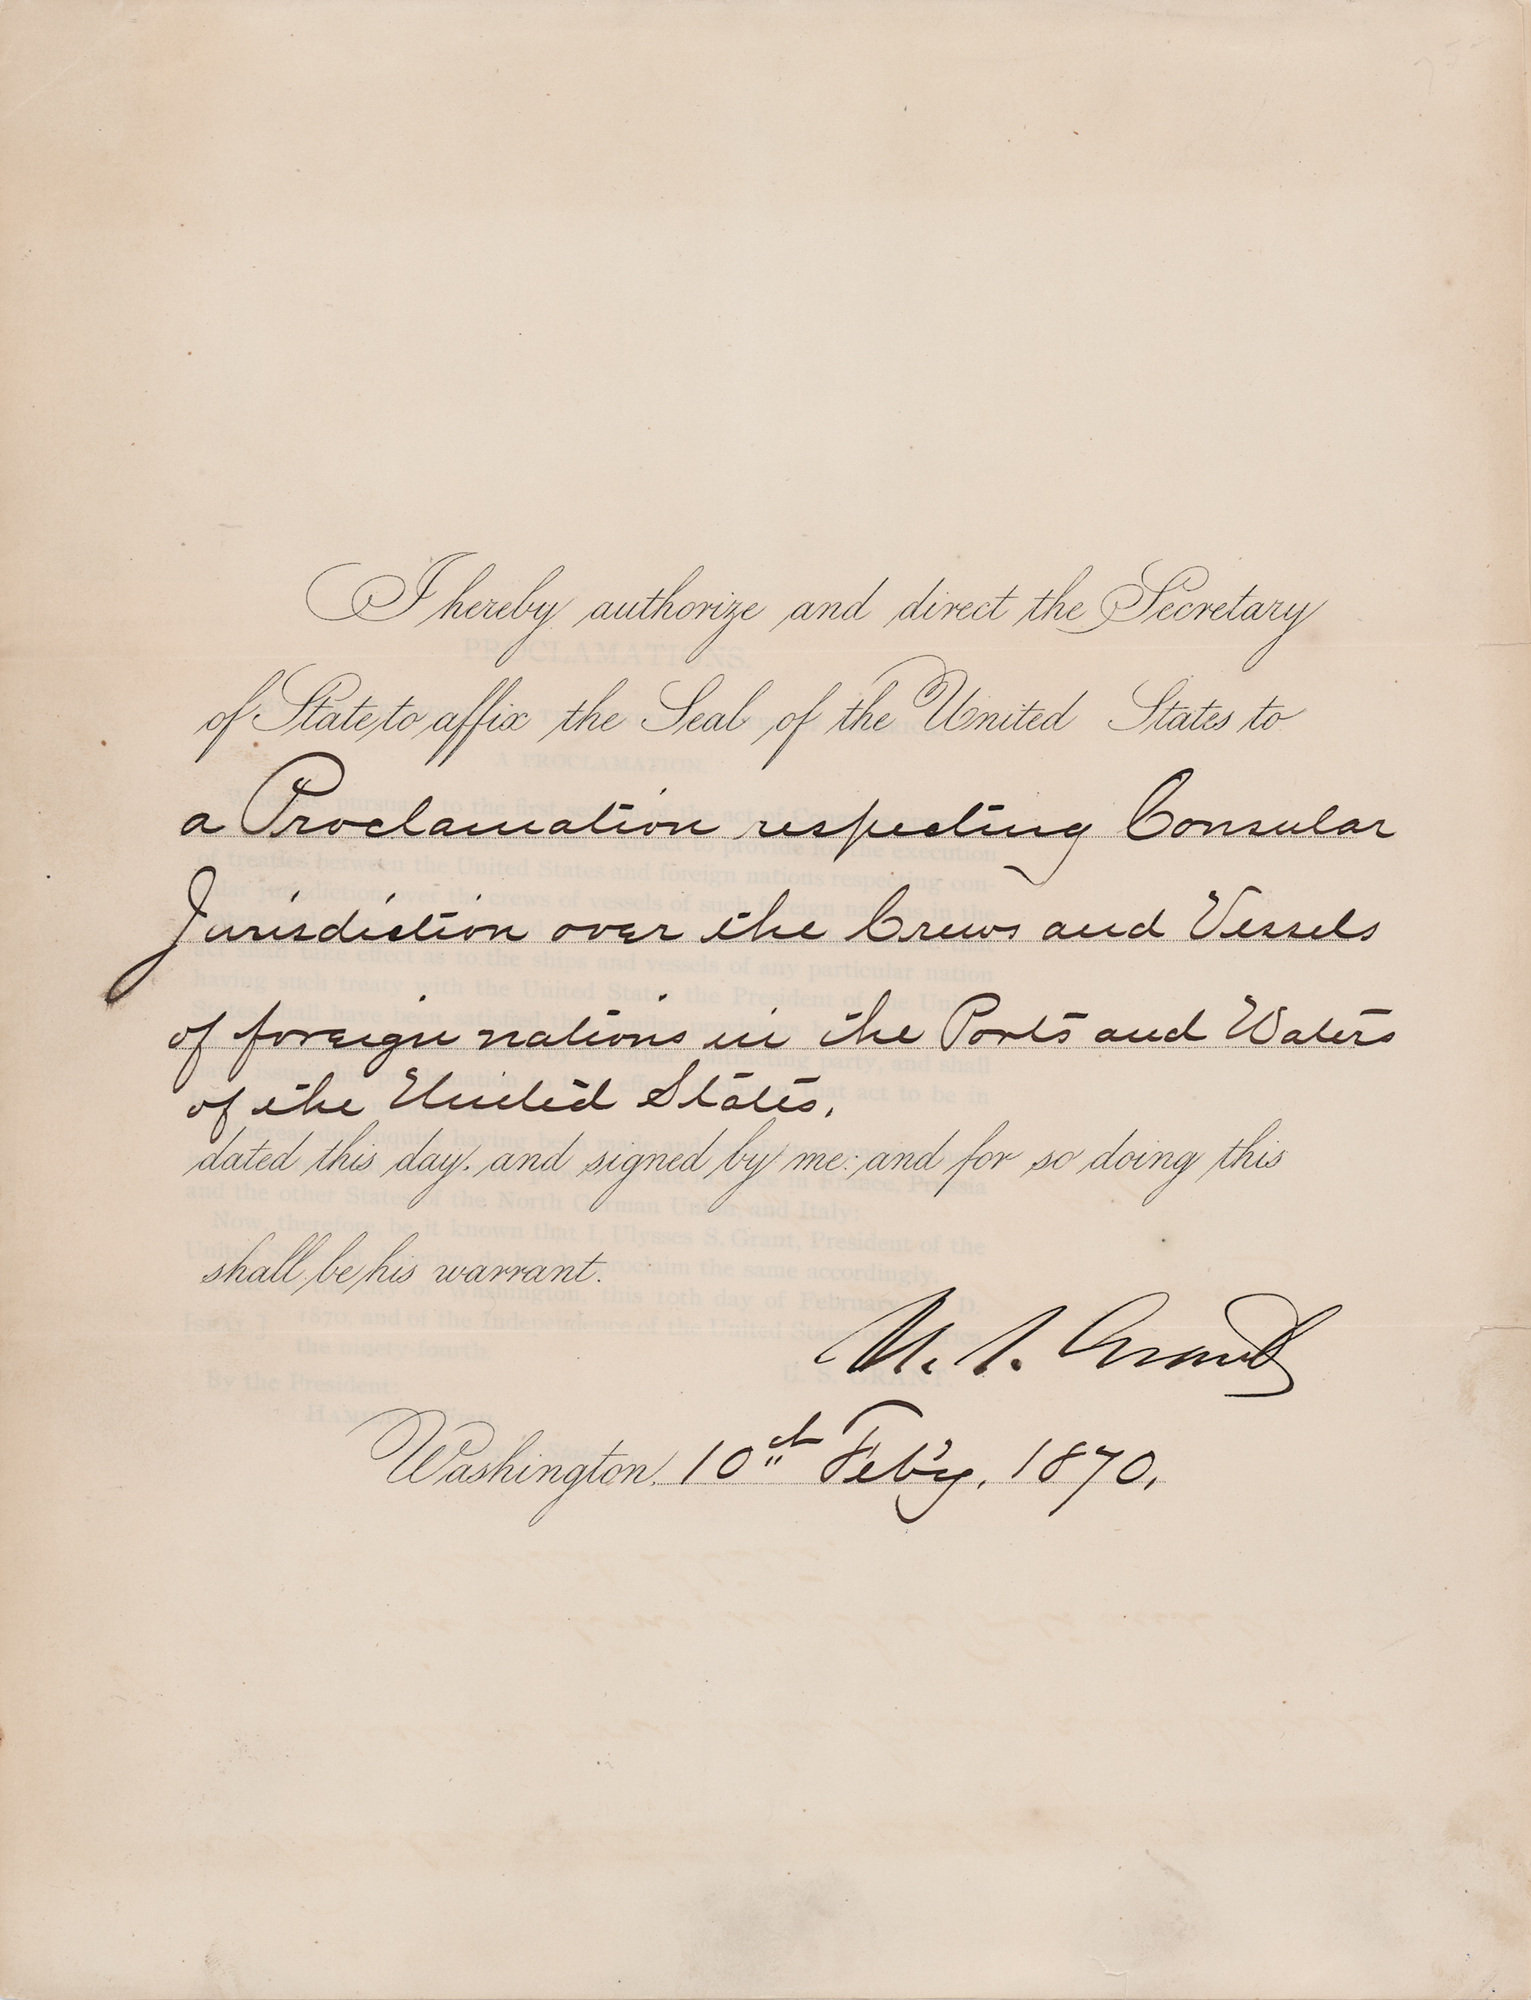 I hereby authorize and direct the Secretary
of State to affix the Seal of the United States to
a Proclamation respecting Consular
Jurisdiction over the Crews and Vessels
of foreign nations in the Ports and Waters
of the United States,
dated this day, and signed by me: and for so doing this
shall be his warrant.
U. S. Grant
Washington, 10th Feb'y, 1870,